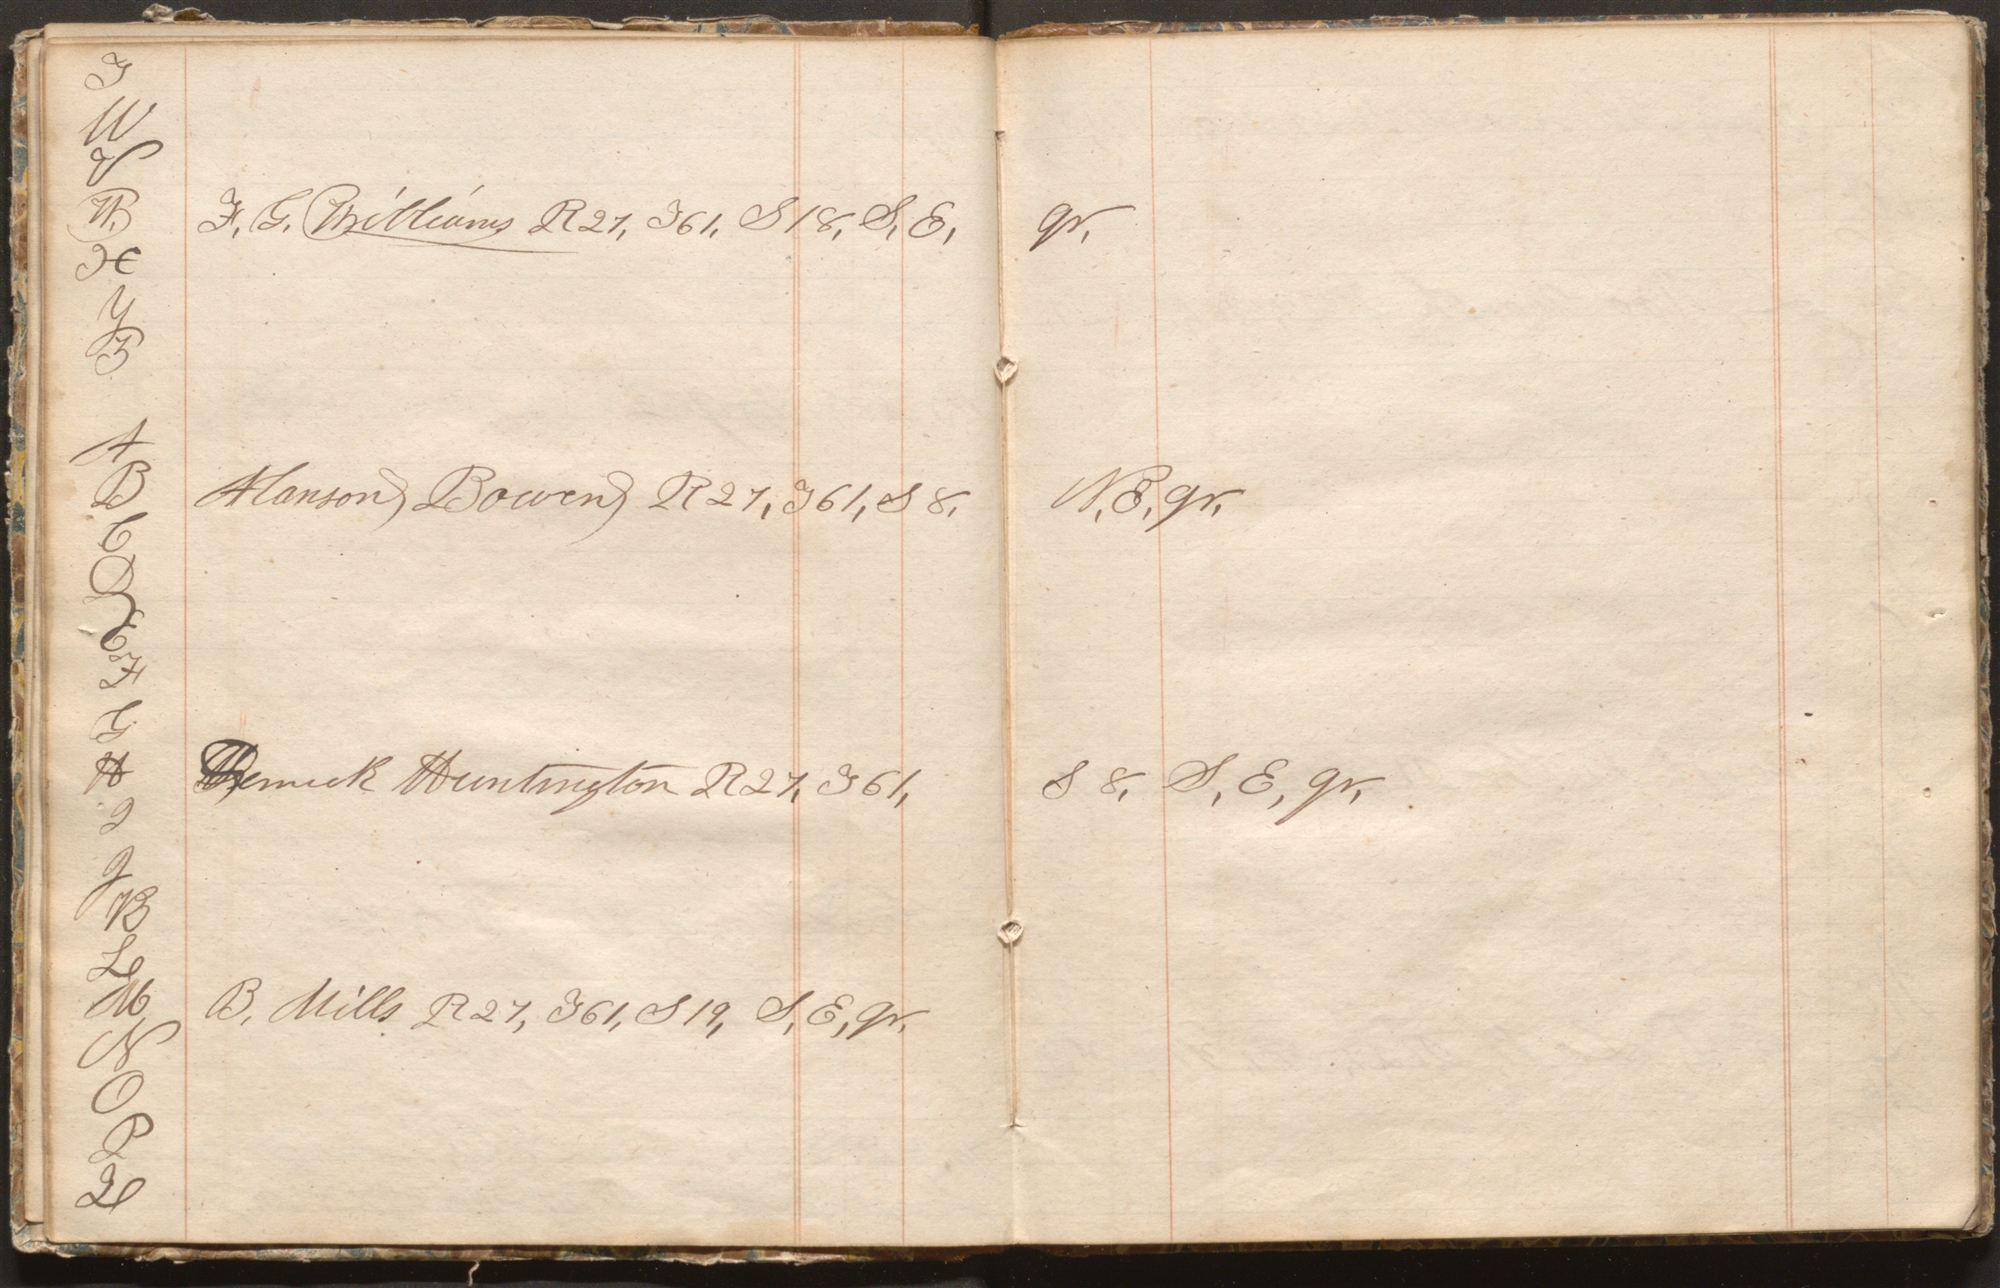 T
U
V
W
X
Y
Z
A
B
C
D
E
F
G
H
I
J
K
L
M
N
O
P
Q
F. G. Williams R27, T61, S18, S, E, qr,
Alanson Bowen R27, T61, S8, N, E, qr,
Remick Huntington R27, T61, S8, S, E, qr,
B, Mills R27, T61, S19, S, E, qr,